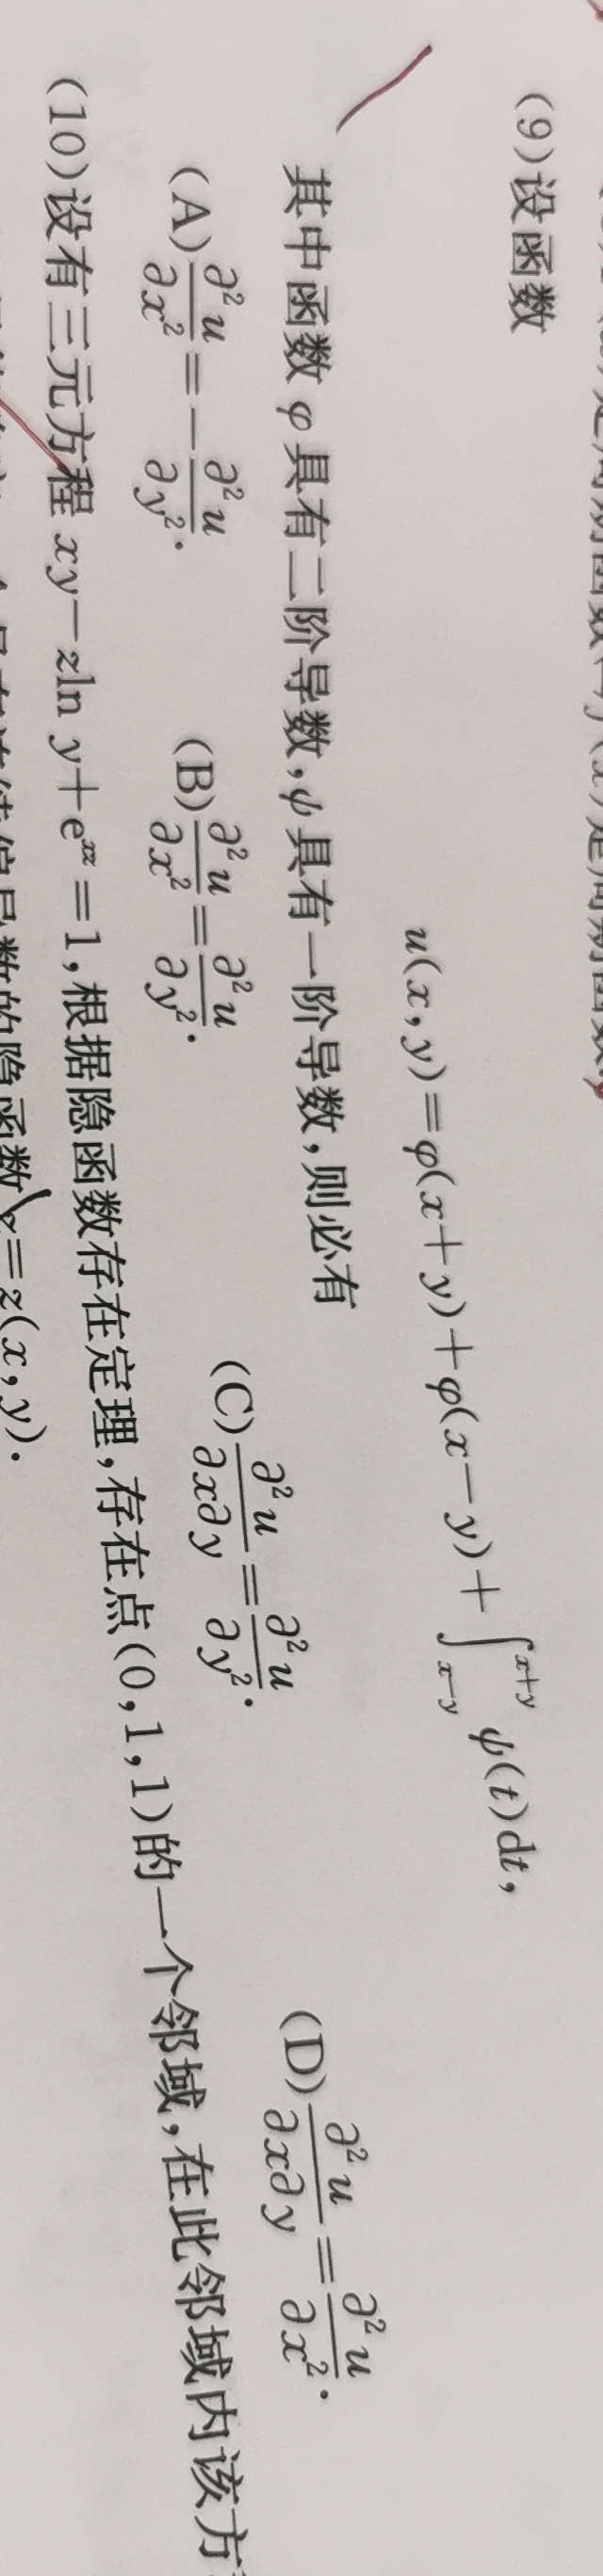 (9)设函数
u(x,y)=φ(x+y)+φ(x-y)+∫_{x-y}^{x+y} ψ(t)dt,
其中函数 φ 具有二阶导数,ψ 具有一阶导数,则必有
(A) ∂²u/∂x² = -∂²u/∂y². (B) ∂²u/∂x² = ∂²u/∂y². (C) ∂²u/∂x∂y = ∂²u/∂y². (D) ∂²u/∂x∂y = ∂²u/∂x².
(10)设有三元方程 xy-zln y+e^{xz}=1,根据隐函数存在定理,存在点(0,1,1)的一个邻域,在此邻域内该方
数的隐函数 z=z(x,y).